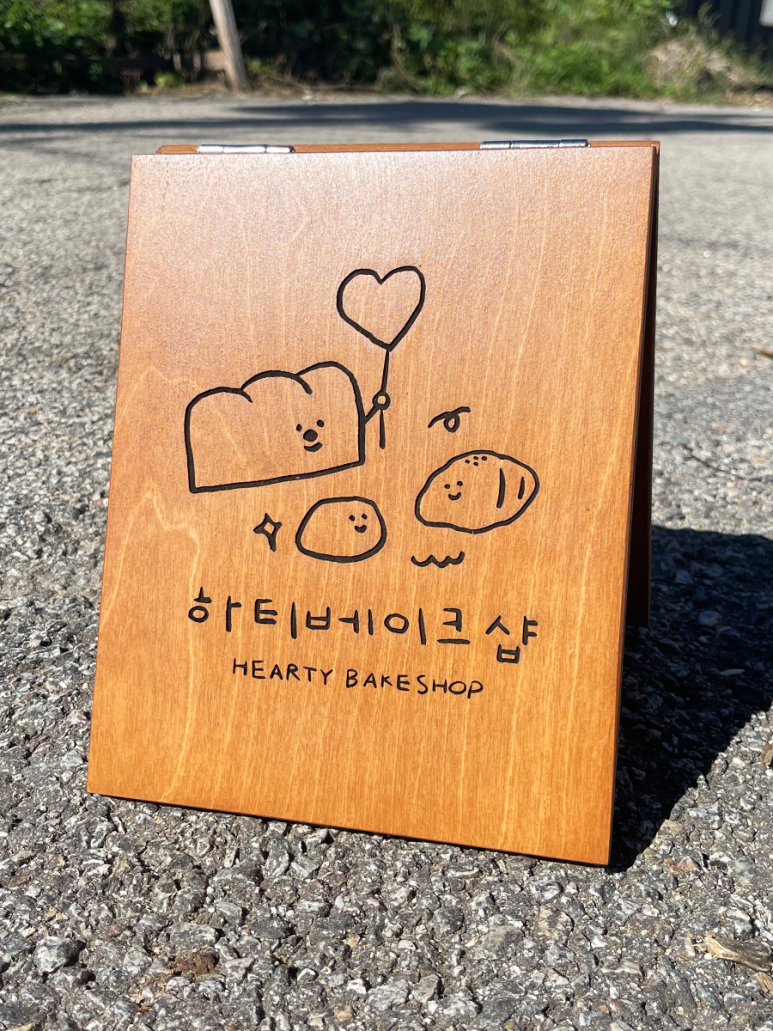 하티베이크샵
HEARTY BAKESHOP